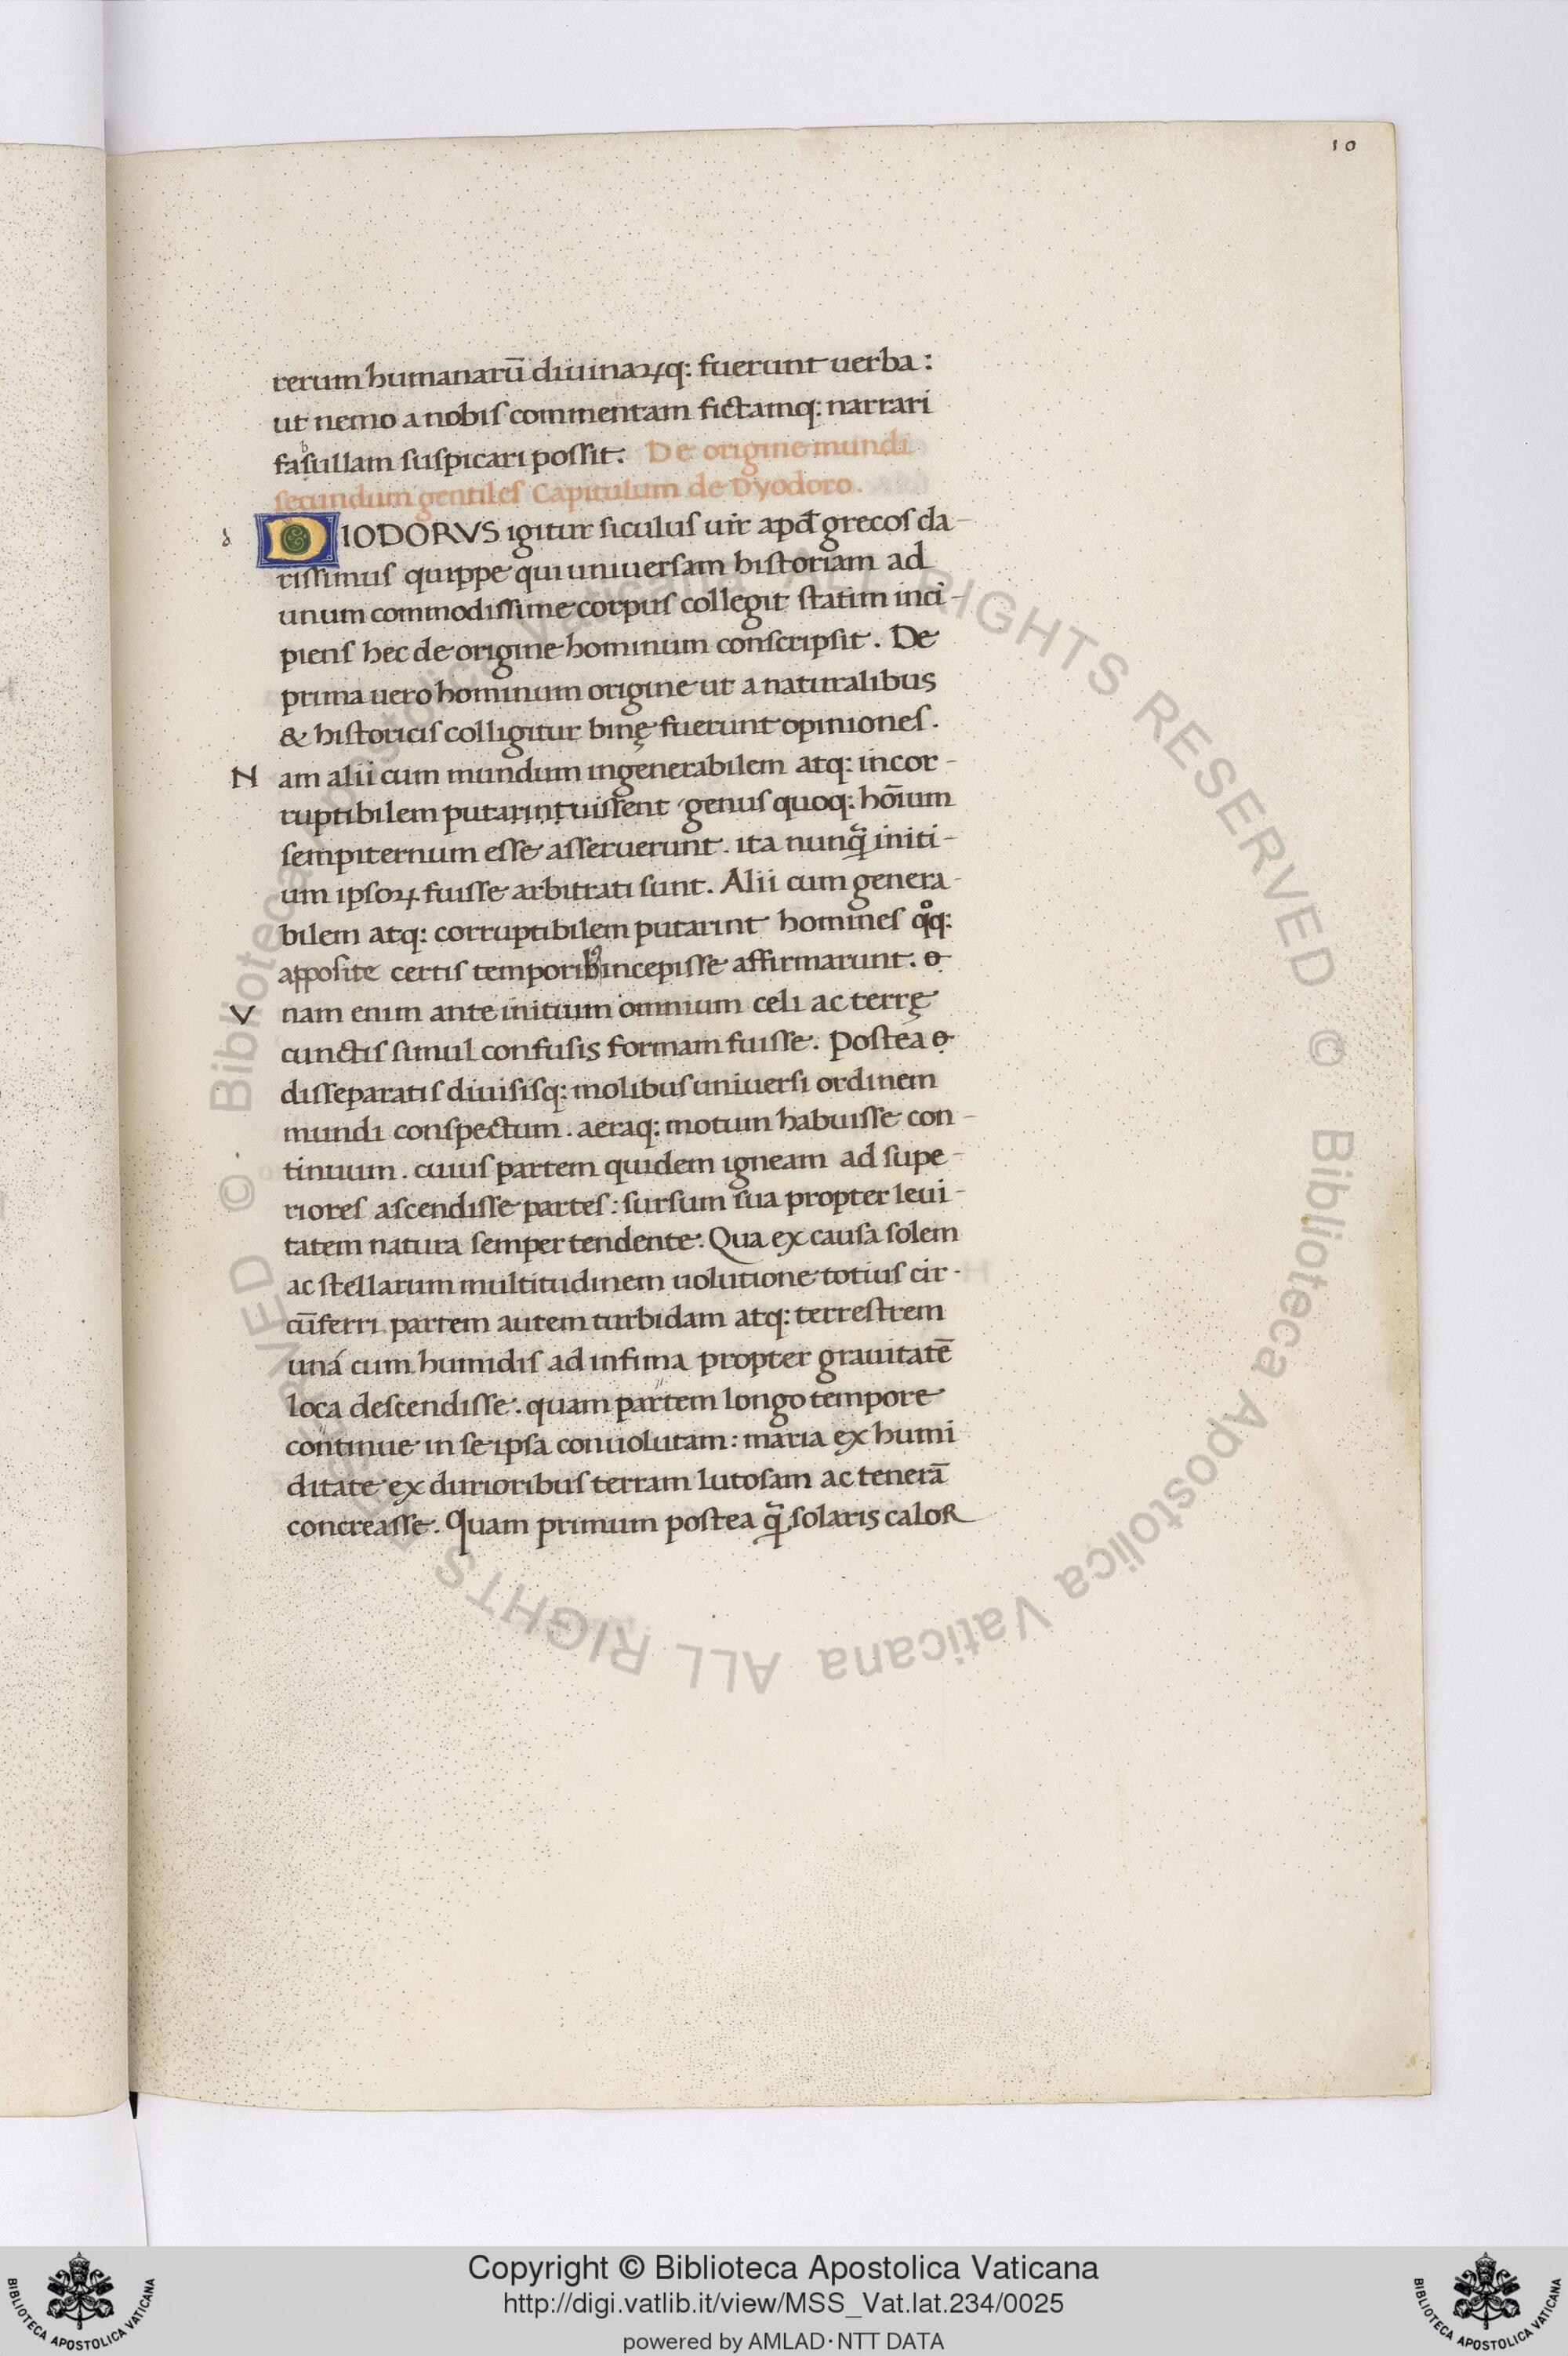 10
rerum humanarū diuinaꝝq: fuerunt uerba:
ut nemo a nobiſ commentam fictamq: narrari
faſullam ſuſpicari poſſit. De origine mundi
b
ſecundum gentileſ Capitulum de Dyodoro.
d DIODORVS igitur ſiculuſ uir apđ grecoſ cla-
riſſimuſ quippe qui uniuerſam hiſtoriam ad
unum commodiſſime corpuſ collegit ſtatim inci-
pienſ hec de origine hominum conſcripſit. De
prima uero hominum origine ut a naturalibus
& hiſtoriciſ colligitur binę fuerunt opinioneſ.
N am alii cum mundum ingenerabilem atq: incor-
ruptibilem putarịṇṭuiſſent genuſ quoq: hoīum
ſempiternum eſſe aſſeruerunt. ita nunq̃ initi-
um ipſoꝝ fuiſſe arbitrati ſunt. Alii cum genera-
bilem atq: corruptibilem putarint homineſ qͦq:
appoſite certiſ temporibꝰ incepiſſe affirmarunt. ọ
V nam enim ante initium omnium celi ac terrę
cunctiſ ſimul confuſis formam fuiſſe. Poſtea ọ
diſſeparatiſ diuiſiſq: molibuſ uniuerſi ordinem
mundi conſpectum. aeraq: motum habuiſſe con-
tinuum. cuiuſ partem quidem igneam ad ſupe-
rioreſ aſcendiſſe parteſ: ſurſum ſua propter leui-
tatem natura ſemper tendente. Qua ex cauſa ſolem
ac ſtellarum multitudinem uolutione totiuſ cir-
cūferri. partem autem turbidam atq: terreſtrem
uná cum humidiſ ad infima propter grauitatē
loca deſcendiſſe. quam partem longo tempore
continue in ſe ipſa conuolutam: maria ex humi
ditate ex durioribuſ terram lutoſam ac tenerā
concreaſſe. Quam primum poſtea q̃ ſolaris calor
© Biblioteca Apostolica Vaticana ALL RIGHTS RESERVED
© Biblioteca Apostolica Vaticana ALL RIGHTS RESERVED
Copyright © Biblioteca Apostolica Vaticana
http://digi.vatlib.it/view/MSS_Vat.lat.234/0025
powered by AMLAD·NTT DATA
BIBLIOTECA APOSTOLICA VATICANA
BIBLIOTECA APOSTOLICA VATICANA